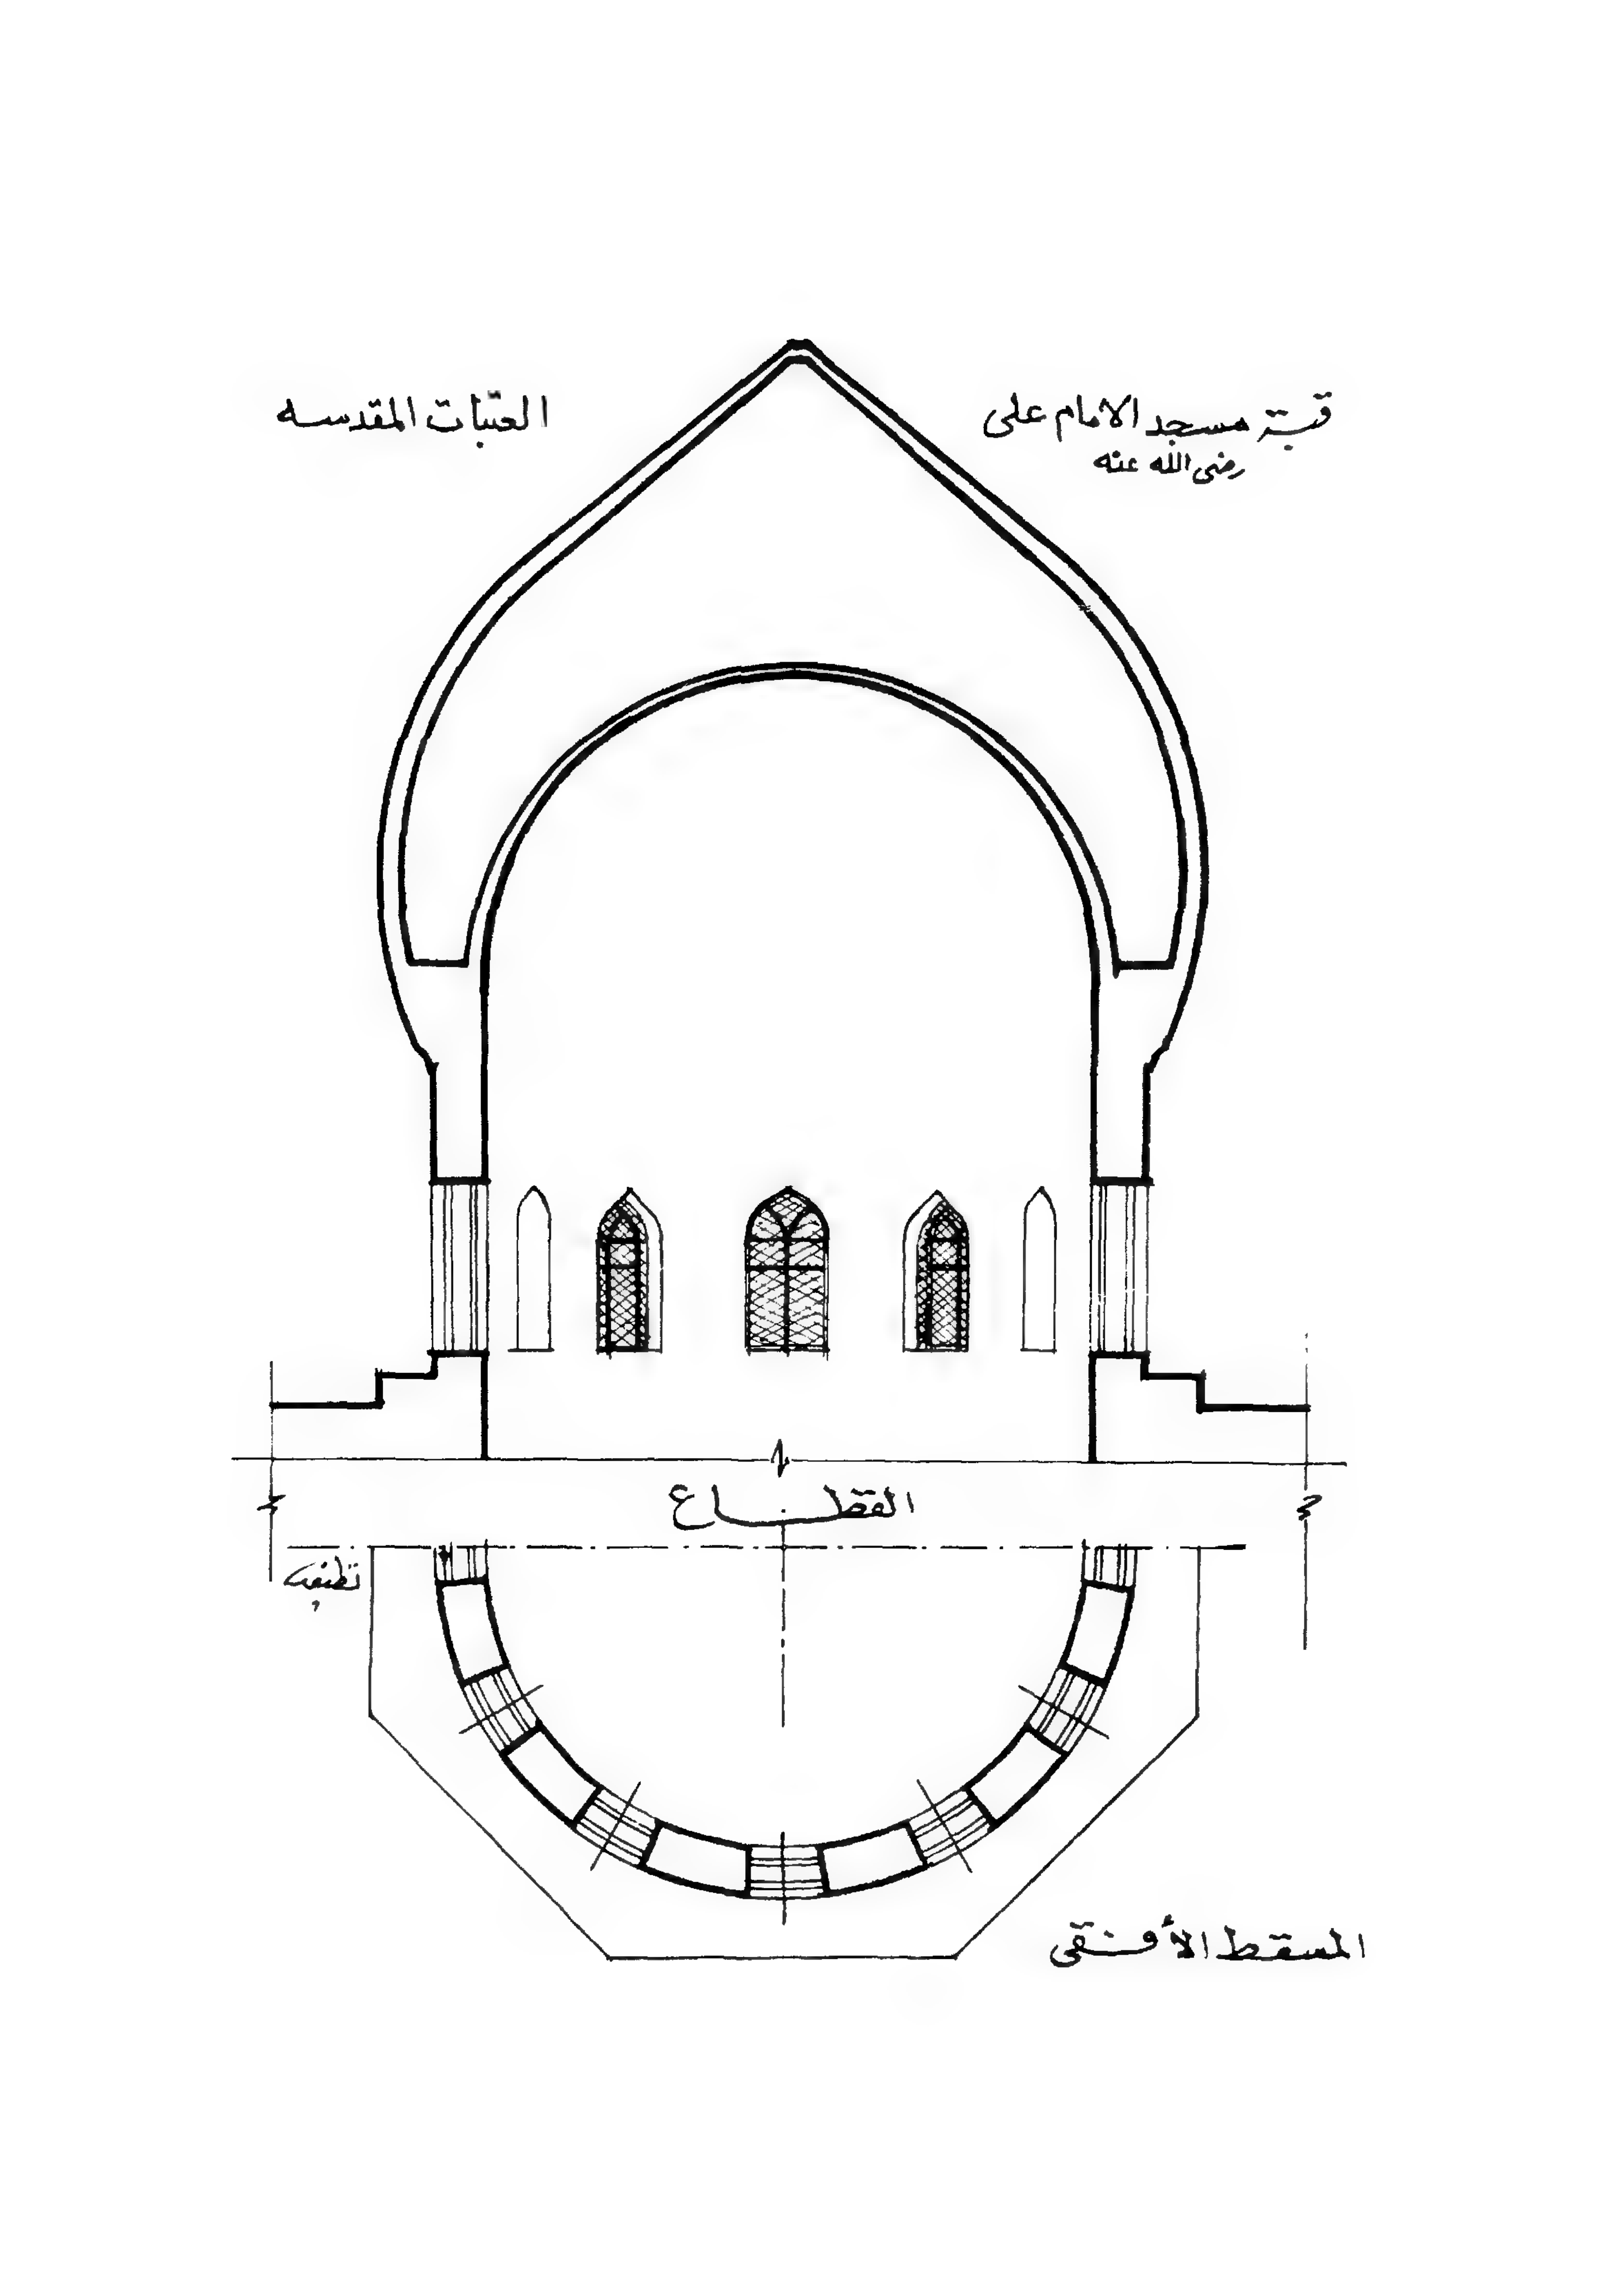 قبة مسجد الامام على
رضى الله عنه
العتبات المقدسه
القطاع
المسقط الأفقى